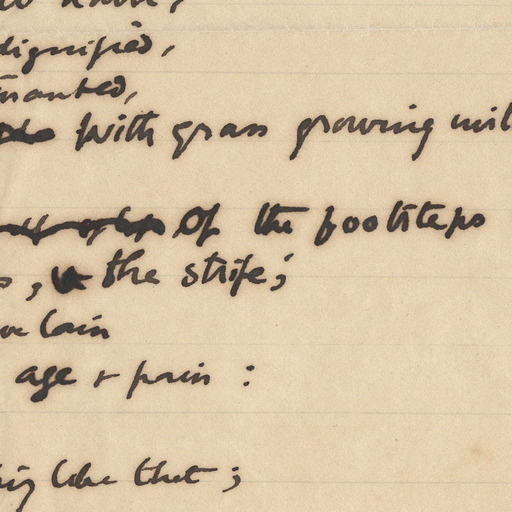 dignified,
With grass growing
Of the footsteps
, the strife;
lain
age + pain :
like that ;